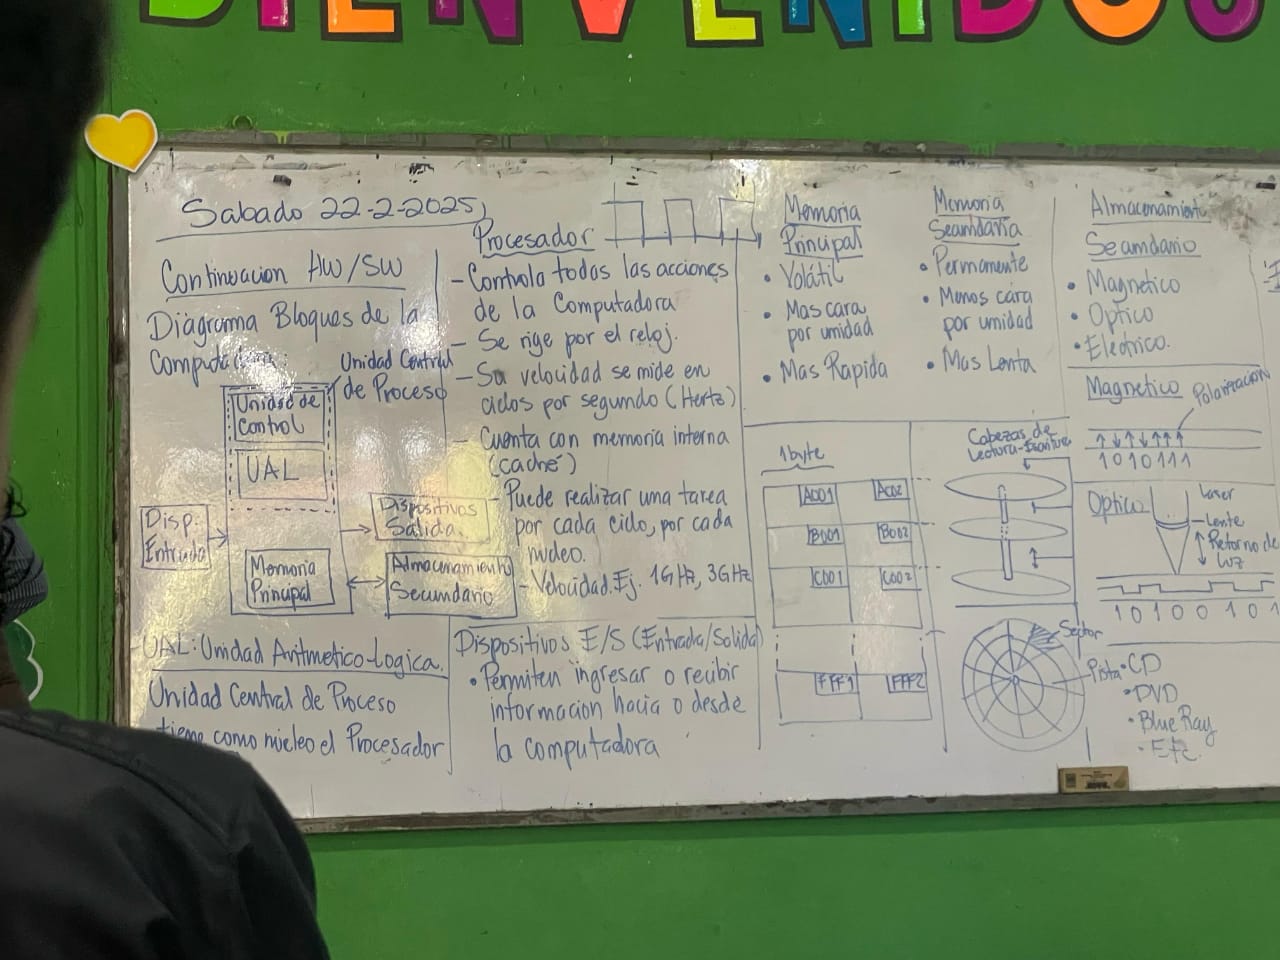 BIENVENIDOS
Sabado 22-2-2025
Continuacion HW/SW
Diagrama Bloques de la
Computadora:
Unidad Central
de Proceso
Unidad de
Control
UAL
Disp.
Entrada
Dispositivos
Salida.
Memoria
Principal
Almacenamiento
Secundario
UAL: Unidad Aritmetico-Logica.
Unidad Central de Proceso
tiene como núcleo el Procesador
Procesador
- Controla todas las acciones
de la Computadora
- Se rige por el reloj.
- Su velocidad se mide en
ciclos por segundo (Hertz)
- Cuenta con memoria interna
(caché)
- Puede realizar una tarea
por cada ciclo, por cada
nucleo.
- Velocidad. Ej. 1GHz, 3GHz
Dispositivos E/S (Entrada/Salida)
• Permiten ingresar o recibir
informacion hacia o desde
la computadora
Memoria
Principal
• Volátil
• Mas cara
por unidad
• Mas Rapida
Memoria
Secundaria
• Permanente
• Menos cara
por unidad
• Mas Lenta
1 byte
A001 A002
B001 B002
C001 C002
FFF1 FFF2
Cabezas de
Lectura-Escritura
Sector
Pista
Almacenamiento
Secundario
• Magnetico
• Optico
• Electrico.
Magnetico
Polarizacion
↑↓↑↓↑↑↑
1010111
Optico
Laser
Lente
Retorno de
luz
10100101
• CD
• DVD
• Blue Ray
• Etc.